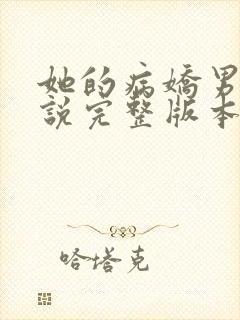 她的病嬌男
說完整版本
哈塔克